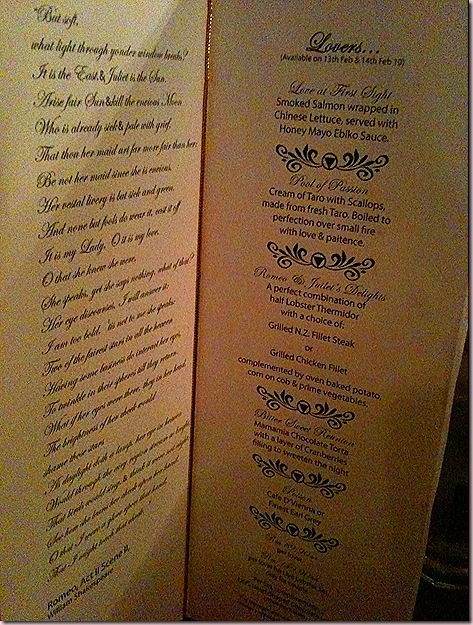 "But soft,
what light through yonder window breaks?
It is the East & Juliet is the Sun.
Arise fair Sun & kill the envious Moon
Who is already sick & pale with grief,
That thou her maid art far more fair than her.
Be not her maid since she is envious.
Her vestal livery is but sick and green,
And none but fools do wear it, cast it off
It is my Lady, O it is my love,
O that she knew she were,
She speaks, yet she says nothing, what of that?
Her eye discourses, I will answer it:
I am too bold, 'tis not to me she speaks:
Two of the fairest stars in all the heaven
Having some business do intreat her eyes,
To twinkle in their spheres till they return.
What if her eyes were there, they in her head,
The brightness of her cheek would
shame those stars
As daylight doth a lamp, her eye in heaven
Would through the airy region stream so bright,
That birds would sing & think it were not night.
See how she leans her cheek upon her hand
O that I were a glove upon that hand,
That I might touch that cheek
Romeo, Act II Scene II,
William Shakespeare
Lovers...
(Available on 13th Feb & 14th Feb 10)
Love at First Sight
Smoked Salmon wrapped in
Chinese Lettuce, served with
Honey Mayo Ebiko Sauce.
Pool of Passion
Cream of Taro with Scallops,
made from fresh Taro. Boiled to
perfection over small fire
with love & paitence.
Romeo & Juliet's Delights
A perfect combination of
half Lobster Thermidor
with a choice of:
Grilled N.Z. Fillet Steak
or
Grilled Chicken Fillet
complemented by oven baked potato,
corn on cob & prime vegetables.
Bitter Sweet Reunion
Mamamia Chocolate Torta
with a layer of Cranberries
filling to sweeten the night
Poison
Cafe D'Vienna or
Finest Earl Grey